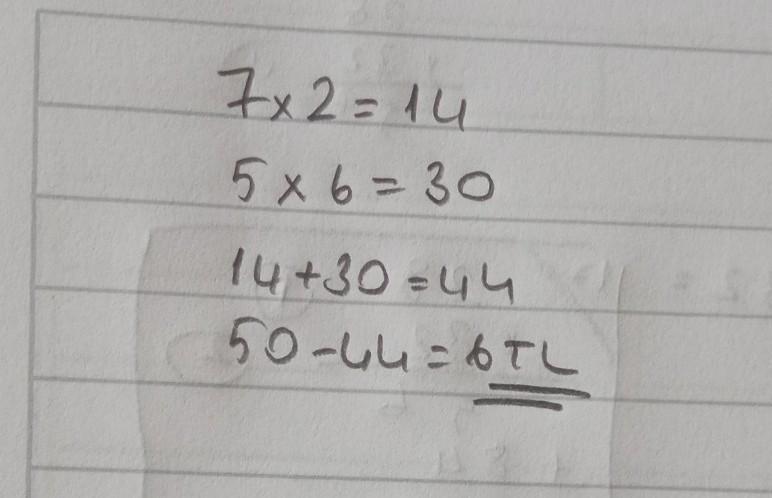 7x2=14
5x6=30
14+30=44
50-44=6TL